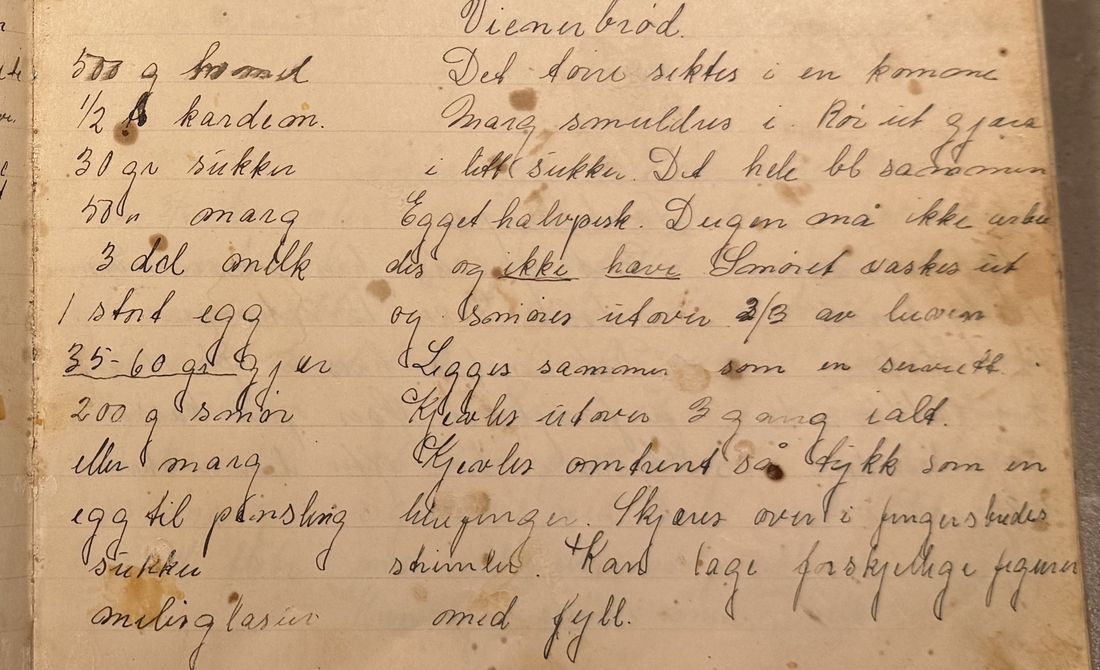 Vienerbrød.
500 g hvmel Det tørre siktes i en komme
1/2 ts kardem. Marg smuldres i. Rør ut gjæra
30 gr sukker i litt sukker. Det hele bl sammen
50 " marg Egget halvpisk. Deigen må ikke arbei
3 del melk des og ikke heve Smøret vaskes ut
1 stort egg og smøres utover 2/3 av leiven
35-60 gr gjær Legges sammen som en serviett.
200 g smør Kjevles utover 3 gang ialt.
eller marg Kjevles omtrent så tykk som en
egg til pensling lillefinger. Skjæres over i fingersbredes
sukker strimler. Kan lage forskjellige figurer
melisglasur med fyll.